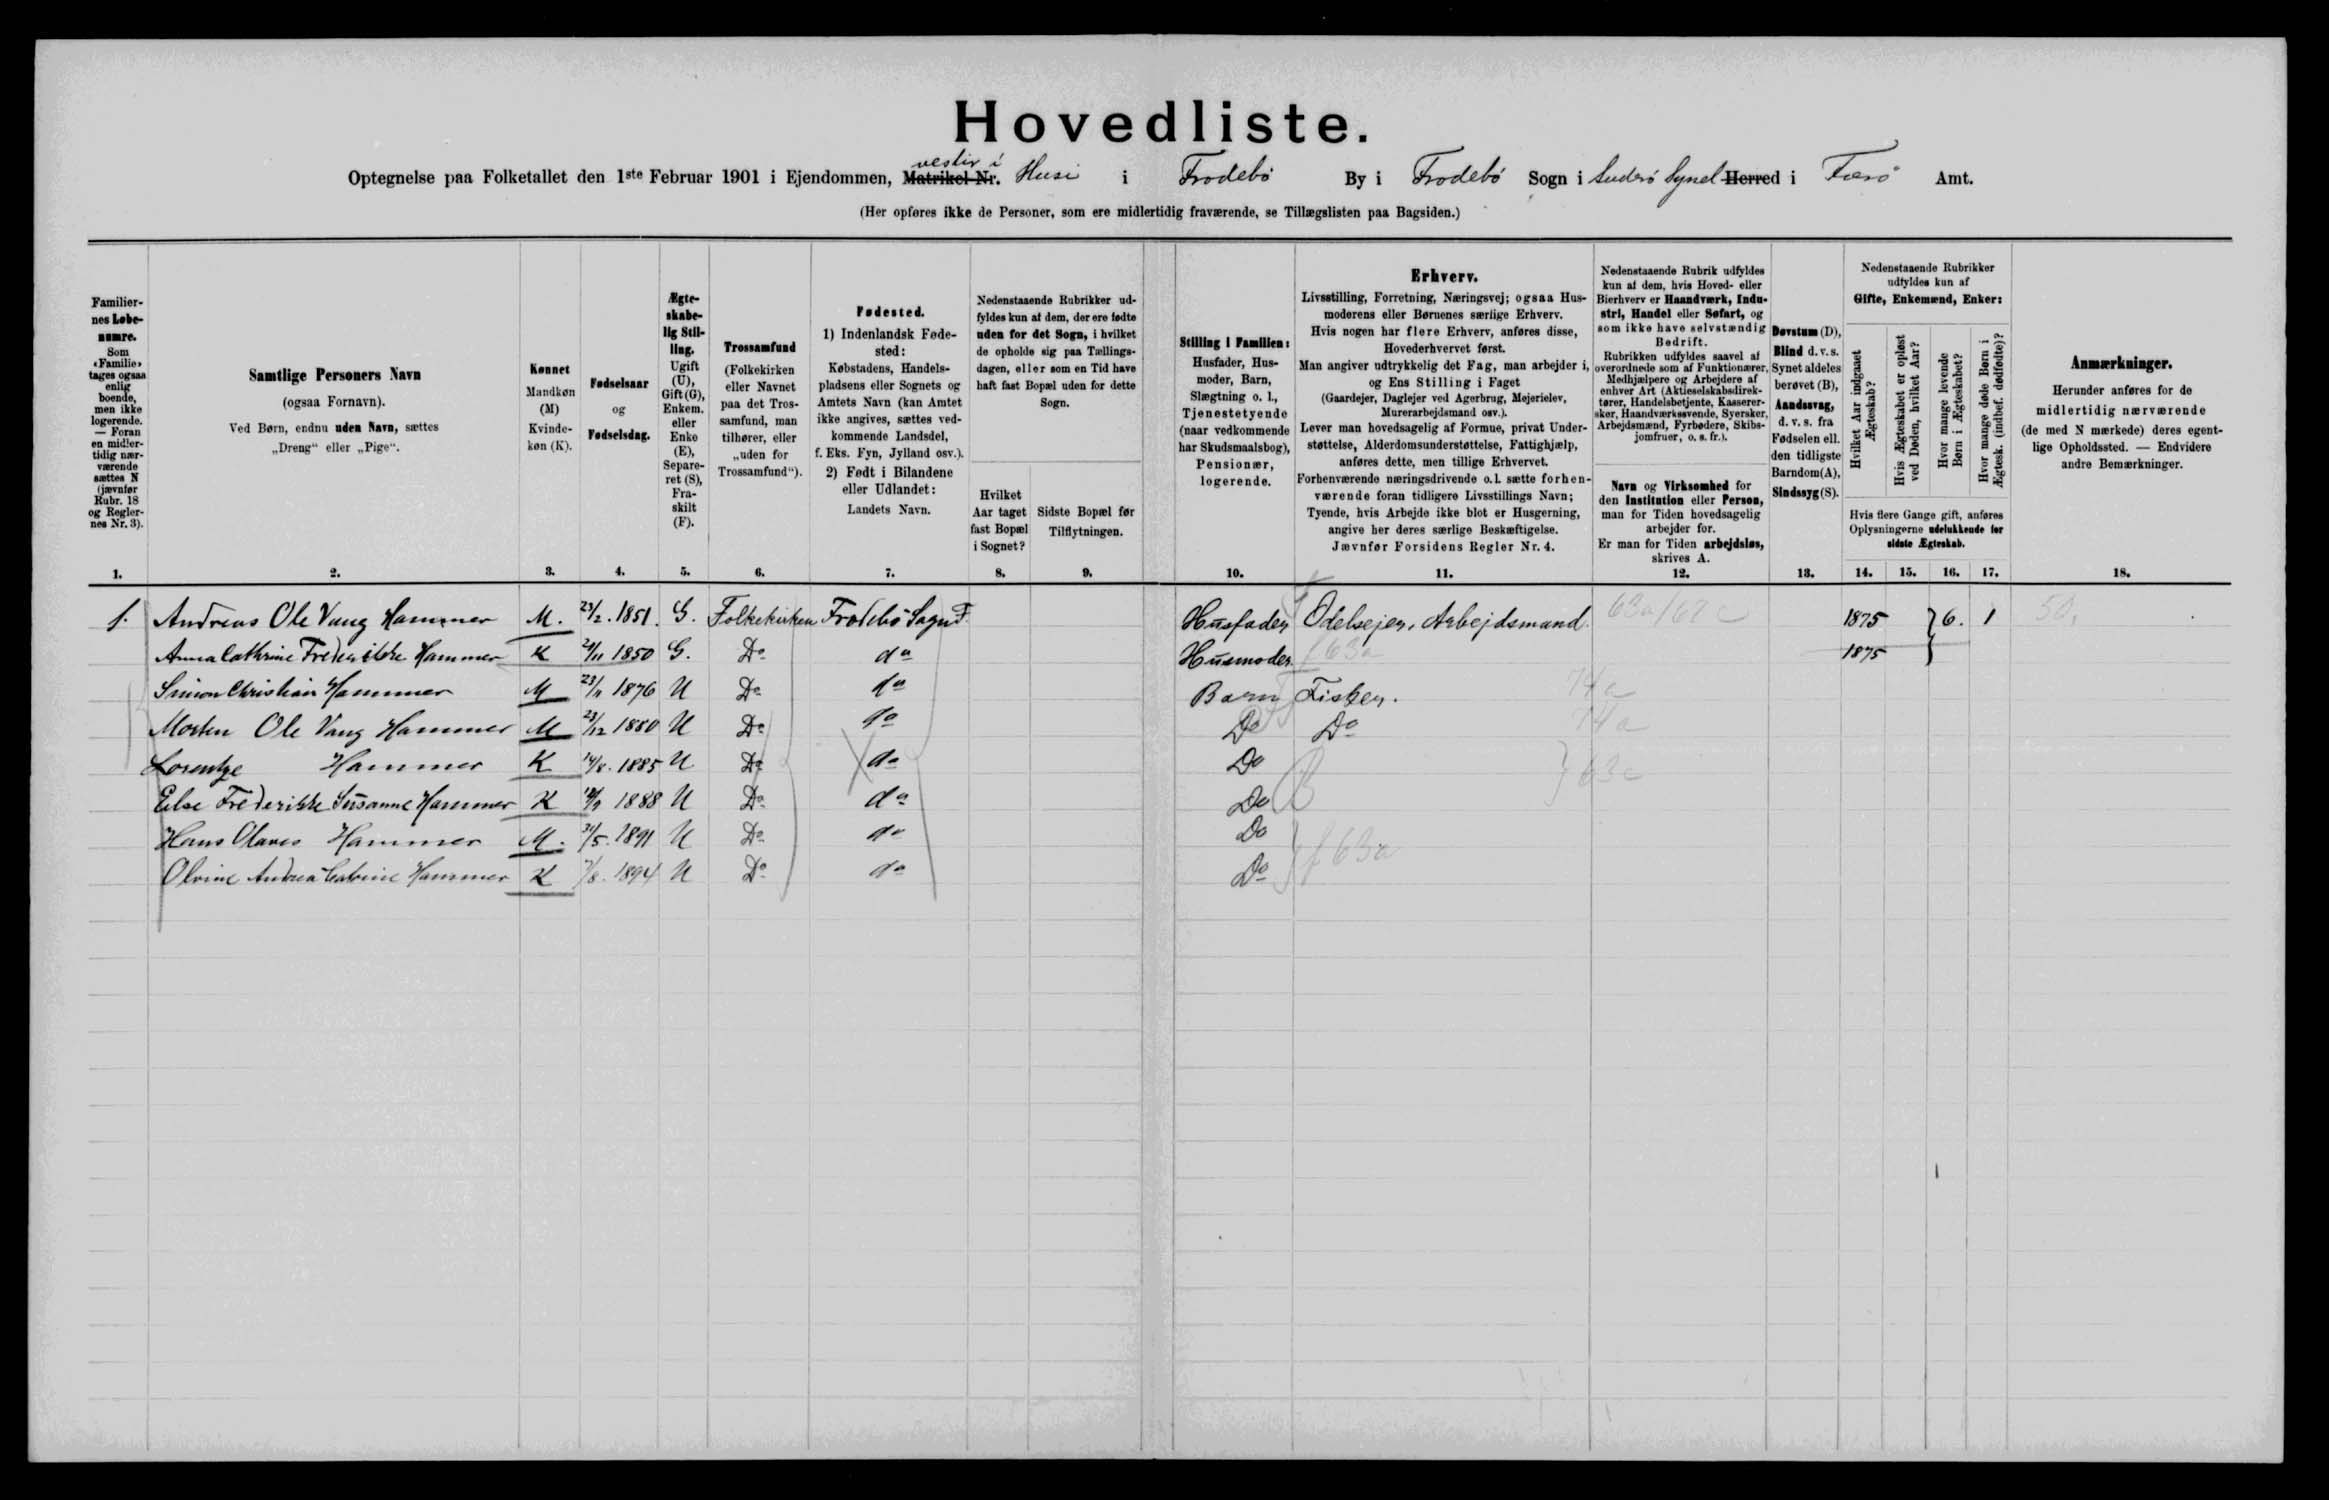 Hovedliste.
vestir i
Optegnelse paa Folketallet den 1ste Februar 1901 i Ejendommen, Matrikel-Nr. Husi i Frodebö By i Frodebö Sogn i Suderö Syssel Herred i Færö Amt.
(Her opføres ikke de Personer, som ere midlertidig fraværende, se Tillægslisten paa Bagsiden.)
Familiernes Løbenumre.
Som «Familie» tages ogsaa enlig boende, men ikke logerende. — Foran en midlertidig nærværende sættes N (jævnfør Rubr. 18 og Reglernes Nr. 3).
Samtlige Personers Navn
(ogsaa Fornavn).
Ved Børn, endnu uden Navn, sættes
„Dreng“ eller „Pige“.
Kønnet
Mandkøn (M)
Kvindekøn (K).
Fødselsaar
og
Fødselsdag.
Ægteskabelig Stilling.
Ugift (U), Gift (G), Enkem. eller Enke (E), Separeret (S), Fraskilt (F).
Trossamfund
(Folkekirken eller Navnet paa det Trossamfund, man tilhører, eller „uden for Trossamfund“).
Fødested.
1) Indenlandsk Fødested:
Købstadens, Handelspladsens eller Sognets og Amtets Navn (kan Amtet ikke angives, sættes vedkommende Landsdel, f. Eks. Fyn, Jylland osv.).
2) Født i Bilandene eller Udlandet:
Landets Navn.
Nedenstaaende Rubrikker udfyldes kun af dem, der ere fødte uden for det Sogn, i hvilket de opholde sig paa Tællingsdagen, eller som en Tid have haft fast Bopæl uden for dette Sogn.
Hvilket Aar taget fast Bopæl i Sognet?
Sidste Bopæl før Tilflytningen.
Stilling i Familien:
Husfader, Husmoder, Barn, Slægtning o. l., Tjenestetyende (naar vedkommende har Skudsmaalsbog), Pensionær, logerende.
Erhverv.
Livsstilling, Forretning, Næringsvej; ogsaa Husmoderens eller Børnenes særlige Erhverv.
Hvis nogen har flere Erhverv, anføres disse, Hovederhvervet først.
Man angiver udtrykkelig det Fag, man arbejder i, og Ens Stilling i Faget
(Gaardejer, Daglejer ved Agerbrug, Mejerielev, Murerarbejdsmand osv.).
Lever man hovedsagelig af Formue, privat Understøttelse, Alderdomsunderstøttelse, Fattighjælp, anføres dette, men tillige Erhvervet.
Forhenværende næringsdrivende o. l. sætte forhenværende foran tidligere Livsstillings Navn;
Tyende, hvis Arbejde ikke blot er Husgerning, angive her deres særlige Beskæftigelse.
Jævnfør Forsidens Regler Nr. 4.
Nedenstaaende Rubrik udfyldes kun af dem, hvis Hoved- eller Bierhverv er Haandværk, Industri, Handel eller Søfart, og som ikke have selvstændig Bedrift.
Rubrikken udfyldes saavel af overordnede som af Funktionærer, Medhjælpere og Arbejdere af enhver Art (Aktieselskabsdirektører, Handelsbetjente, Kasserersker, Haandværkssvende, Syersker, Arbejdsmænd, Fyrbødere, Skibsjomfruer, o. s. fr.).
Navn og Virksomhed for den Institution eller Person, man for Tiden hovedsagelig arbejder for.
Er man for Tiden arbejdsløs, skrives A.
Døvstum (D), Blind d. v. s. Synet aldeles berøvet (B), Aandssvag, d. v. s. fra Fødselen ell. den tidligste Barndom (A), Sindssyg (S).
Nedenstaaende Rubrikker udfyldes kun af
Gifte, Enkemænd, Enker:
Hvilket Aar indgaaet Ægteskab?
Hvis Ægteskabet er opløst ved Døden, hvilket Aar?
Hvor mange levende Børn i Ægteskabet?
Hvor mange døde Børn i Ægtesk. (indbef. dødfødte)?
Hvis flere Gange gift, anføres Oplysningerne udelukkende for sidste Ægteskab.
Anmærkninger.
Herunder anføres for de midlertidig nærværende (de med N mærkede) deres egentlige Opholdssted. — Endvidere andre Bemærkninger.
1. 2. 3. 4. 5. 6. 7. 8. 9. 10. 11. 12. 13. 14. 15. 16. 17. 18.
1. Andreas Ole Vang Hammer M. 23/2. 1851. G. Folkekirken Frodebö Sogn F. Husfader Odelsejer, Arbejdsmand. 63a/67c 1875 6. 1 50.
Anna Cathrine Frederikke Hammer K 21/11 1850 G. Do do Husmoder 63a 1875
Simon Christian Hammer M 23/11 1876 U Do do Barn Fisker. 74a
Morten Ole Vang Hammer M 23/12 1880 U Do do Do Do 74a
Lorentze Hammer K 14/8. 1885 U Do do Do 63c
Else Frederikke Susanne Hammer K 1888 U Do do Do
Hans Olaves Hammer M. 1891 U Do do Do
Olvine Andrea Catrine Hammer K 7/8. 1894 U Do do Do f 63a